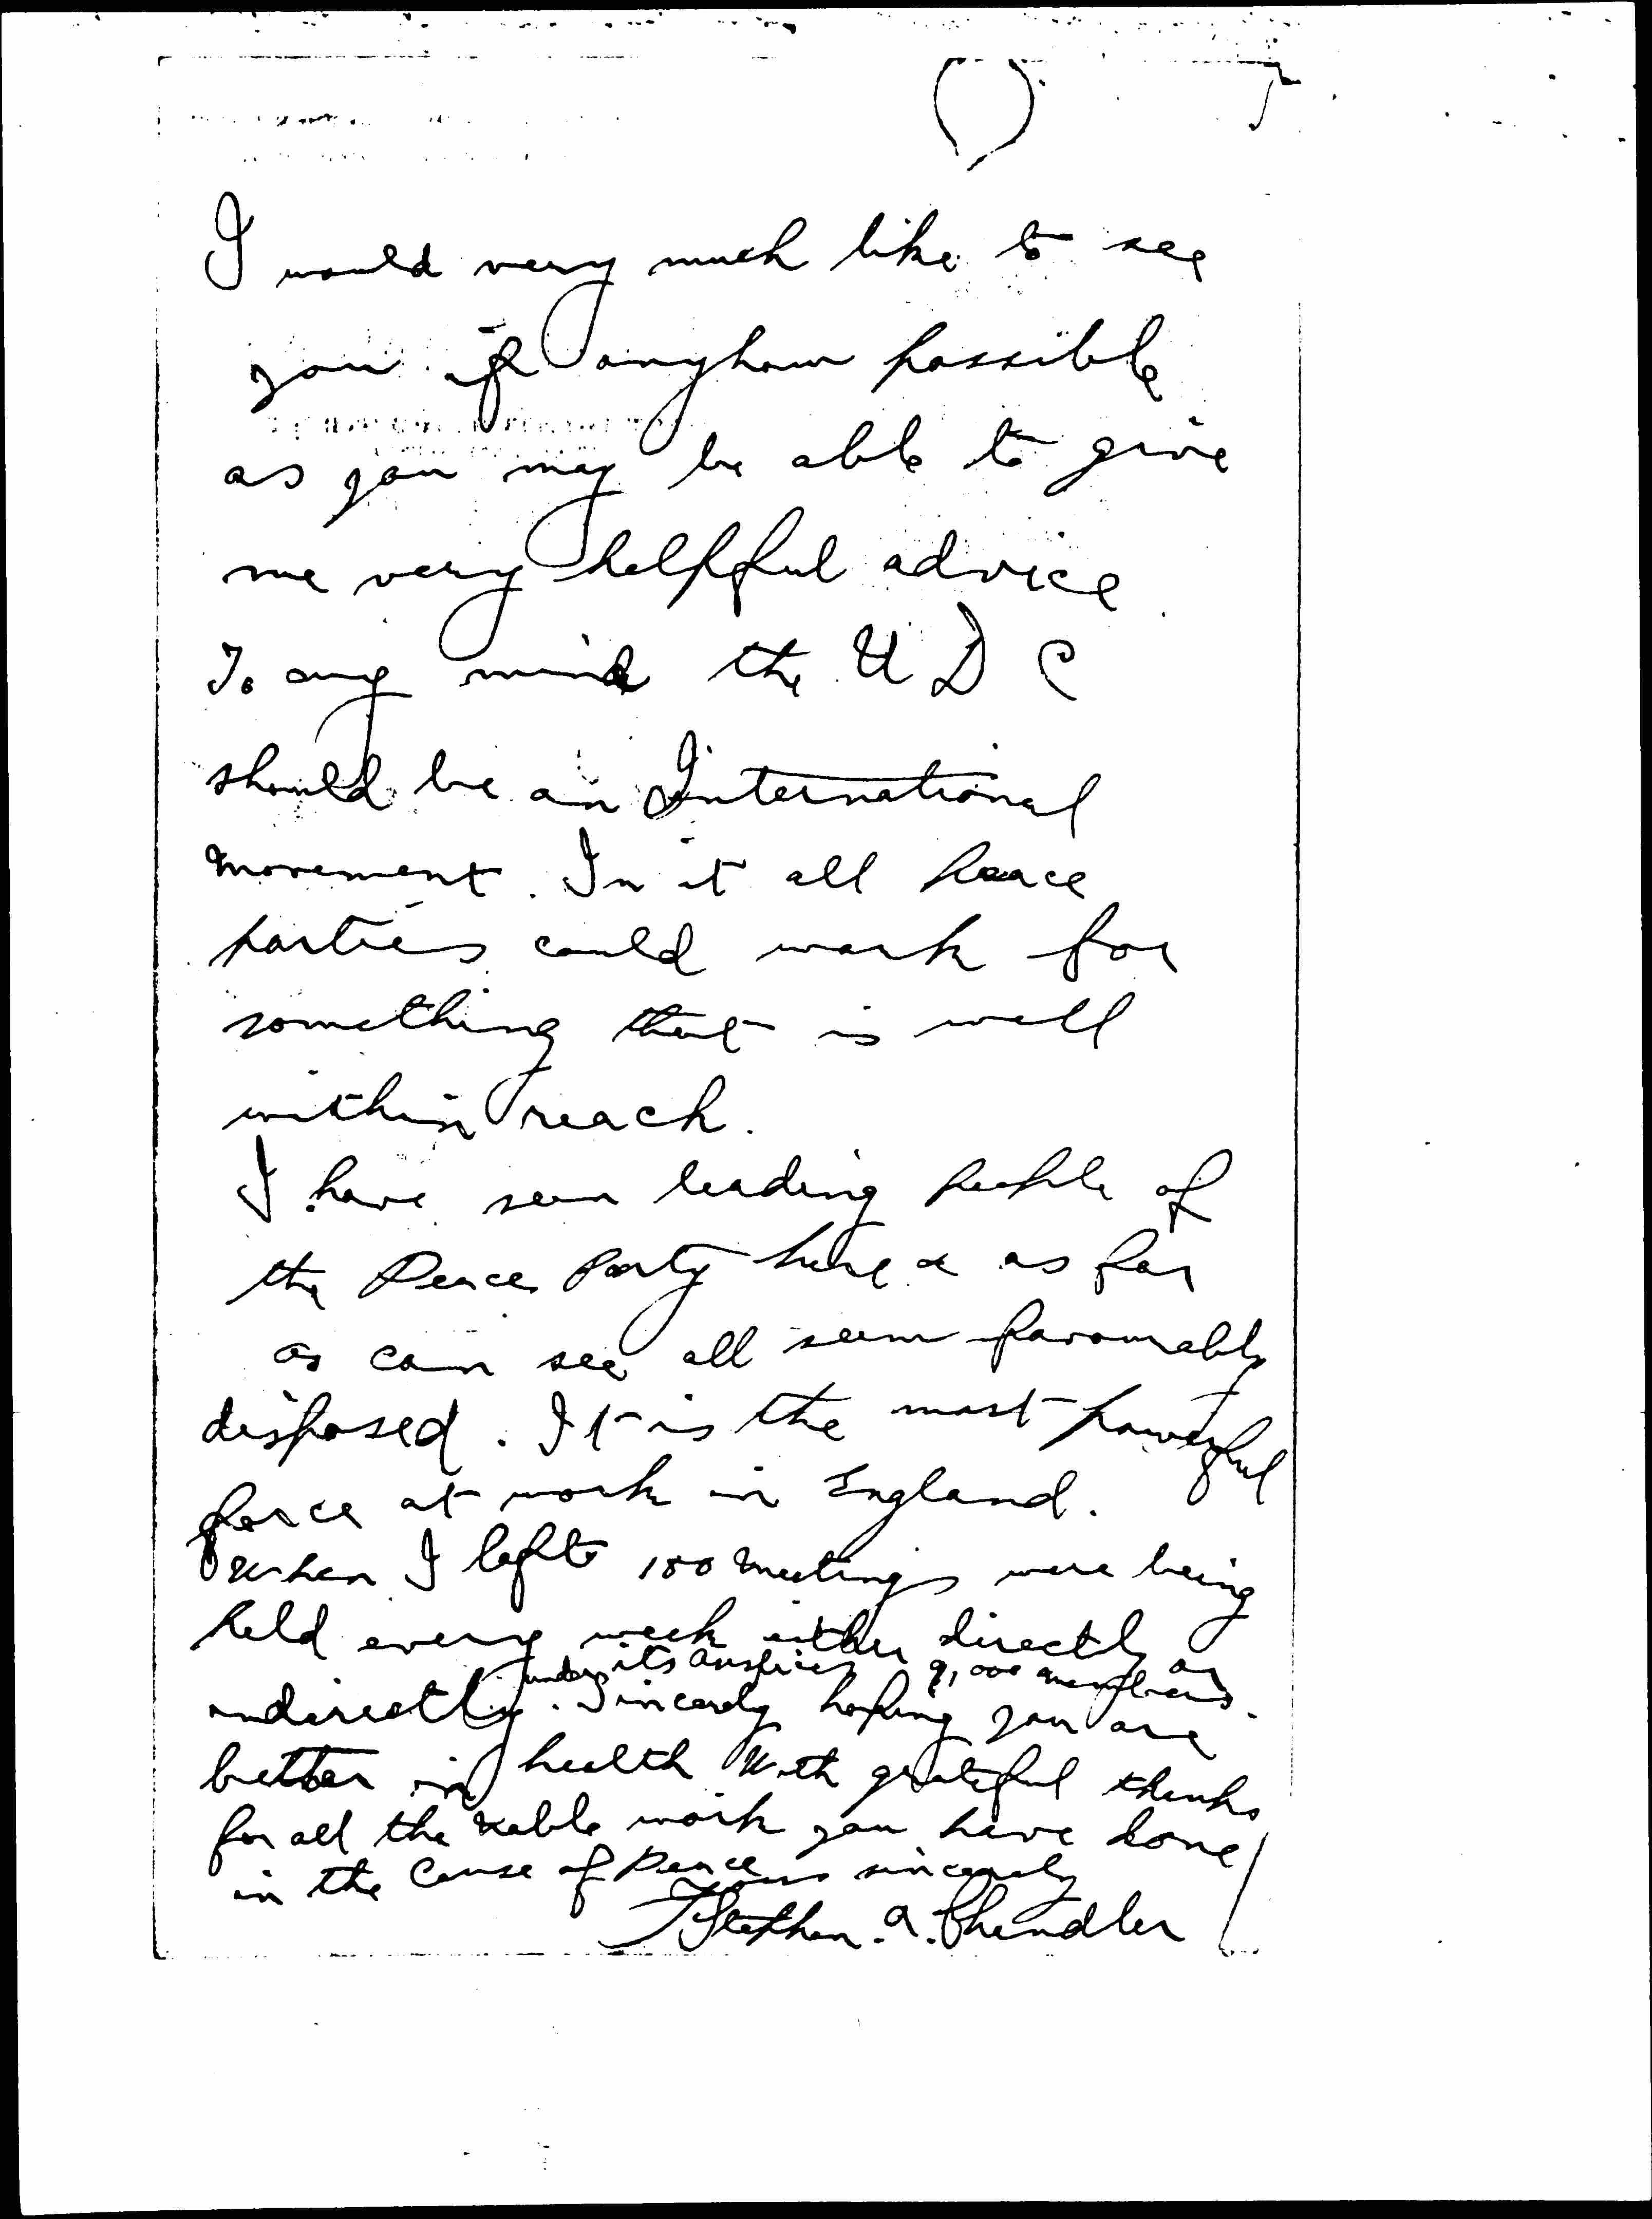 I would very much like to see
you if anyhow possible
as you may be able to give
me very helpful advice
To my mind the U D C
should be an International
movement. In it all peace
parties could work for
something that is well
within reach.
I have seen leading people of
the Peace Party here & as far
as can see all seem favourably
disposed. It is the most powerful
force at work in England.
When I left 100 meetings were being
held every week either directly or
under its auspices 9,000 members.
indirectly. Sincerely hoping you are
better in health With grateful thanks
for all the noble work you have done
in the Cause of Peace
Yours sincerely
Stephen. A.